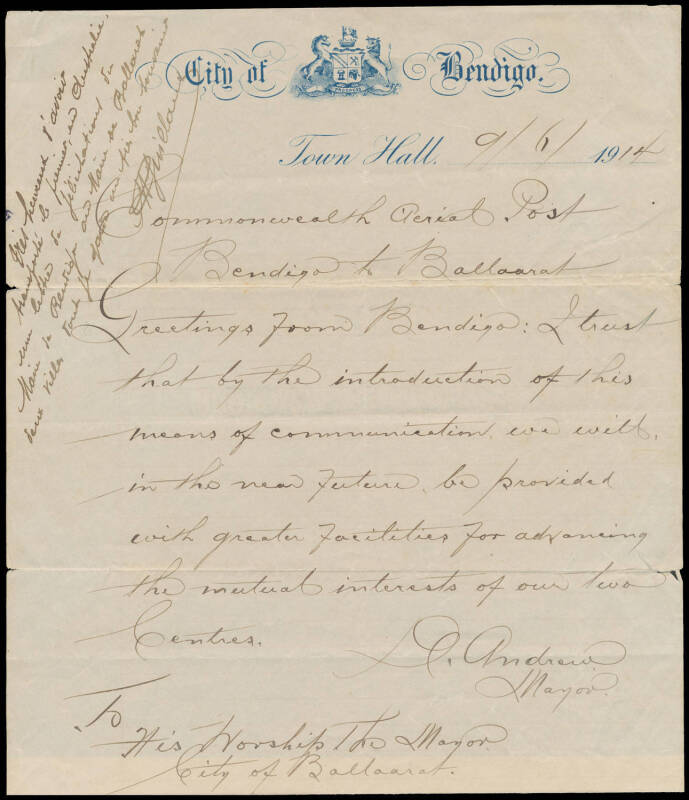 City of Bendigo.
Town Hall. 9/6/1914
Commonwealth Aerial Post
Bendigo to Ballaarat
Greetings from Bendigo: I trust
that by the introduction of this
means of communication, we will,
in the near future, be provided
with greater facilities for advancing
the mutual interests of our two
Centres.
D. Andrew
Mayor.
To
His Worship The Mayor
City of Ballaarat.
Très heureux d'avoir
transporté le premier, en Australie,
une lettre de félicitations du
Maire de Bendigo au Maire de Ballarat
deux villes